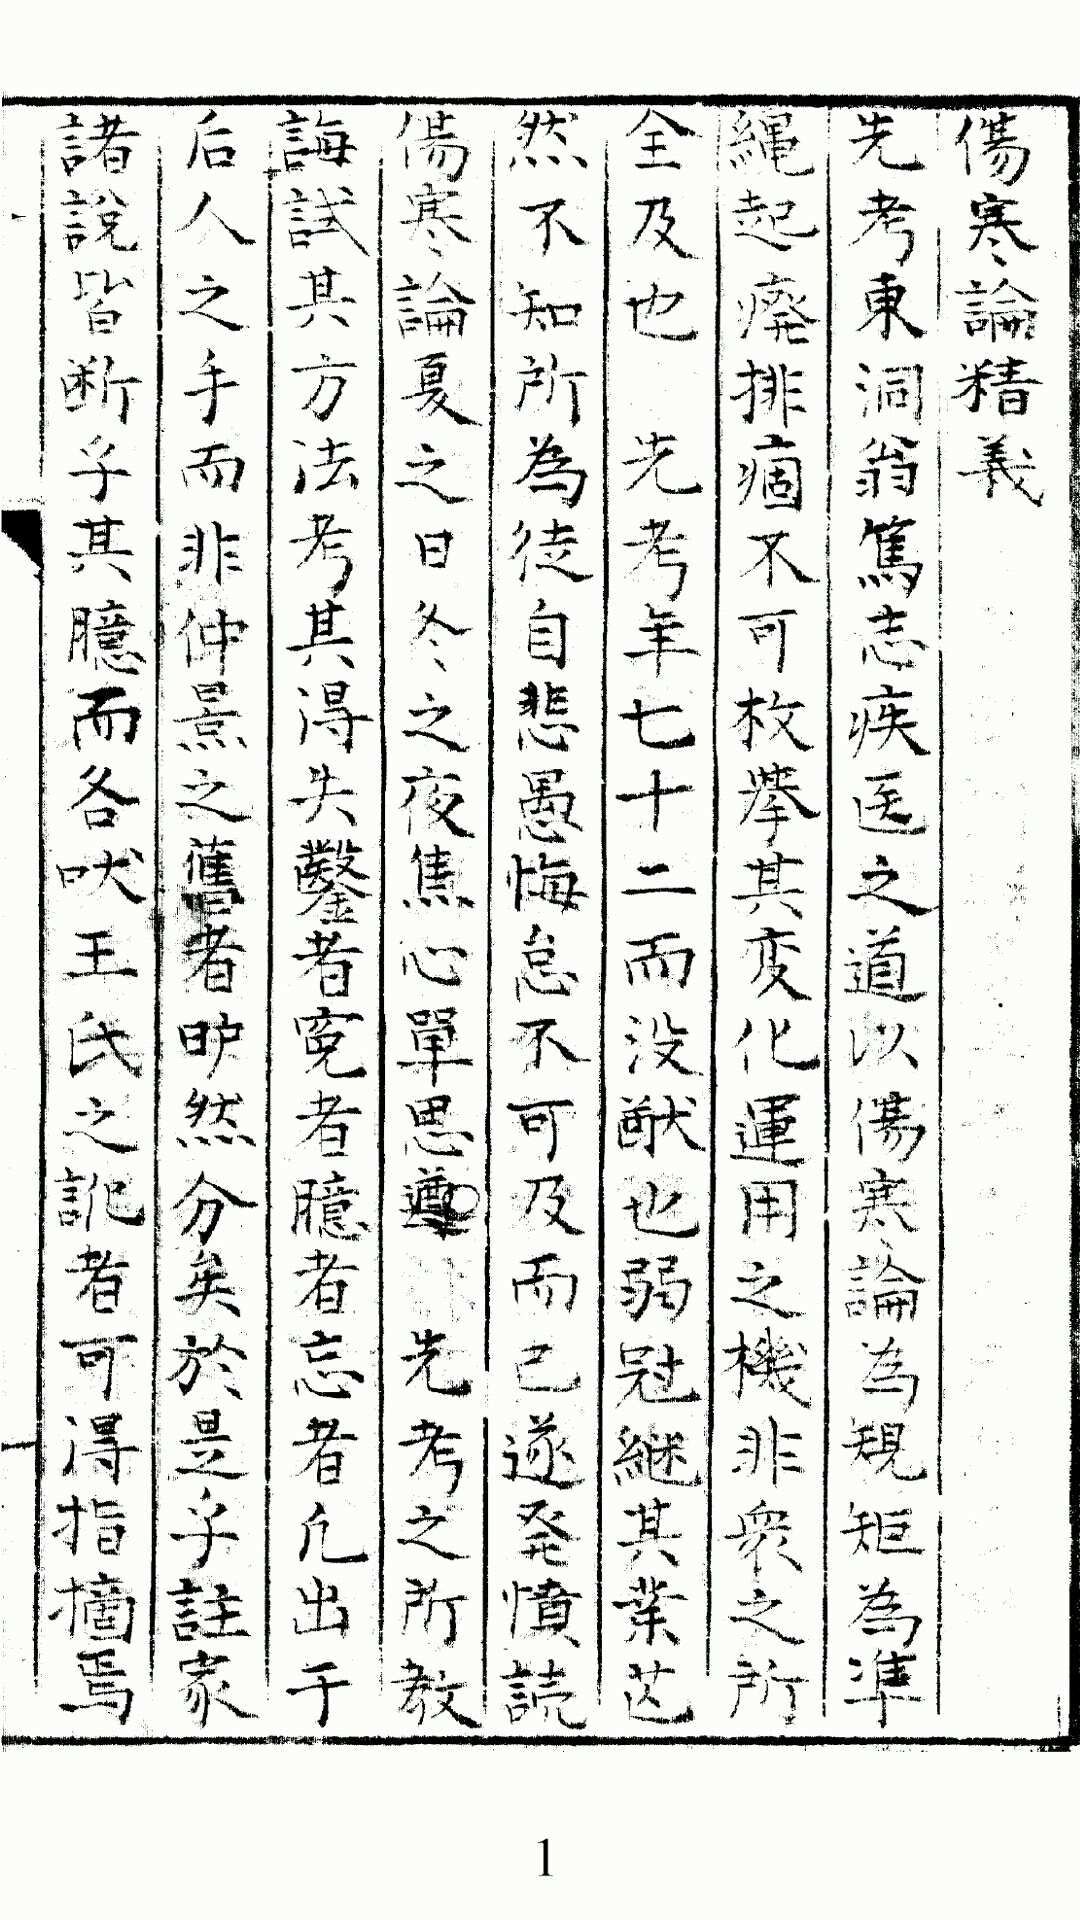 傷寒論精義
先考東洞翁篤志疾医之道以傷寒論為規矩為準
繩起癈排痼不可枚挙其変化運用之機非衆之所
全及也　先考年七十二而没猷也弱冠継其業芒
然不知所為徒自悲愚悔怠不可及而已遂発憤読
傷寒論夏之日冬之夜焦心單思遵　先考之所教
誨試其方法考其得失鑿者寃者臆者忘者凢出于
后人之手而非仲景之舊者昈然分矣於是乎註家
諸說皆断乎其臆而各吠王氏之訛者可得指摘焉
一
1